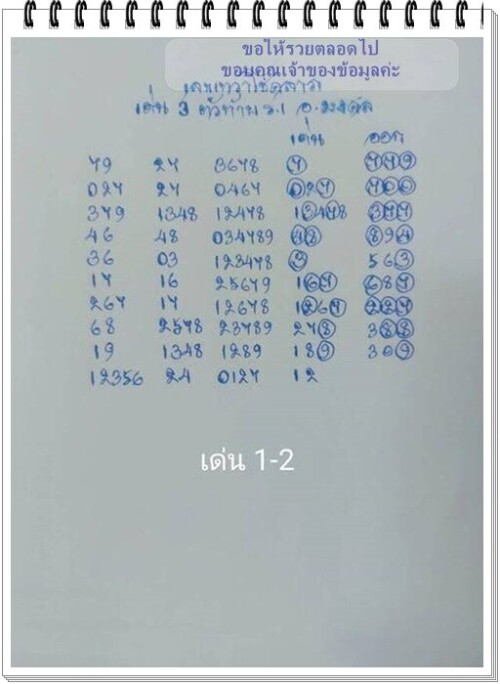 ขอให้รวยตลอดไป
ขอบคุณเจ้าของข้อมูลค่ะ
เด่น 3 ตัวท้าย ร.1
เด่น ออก
79 27 3678 7 779
027 27 0467 027 700
379 1348 12478 13478 377
46 48 034789 48 894
36 03 123478 3 563
17 16 25679 167 687
267 17 12678 1267 227
68 2578 23789 278 388
19 1348 1289 189 309
12356 24 0127 12
เด่น 1-2